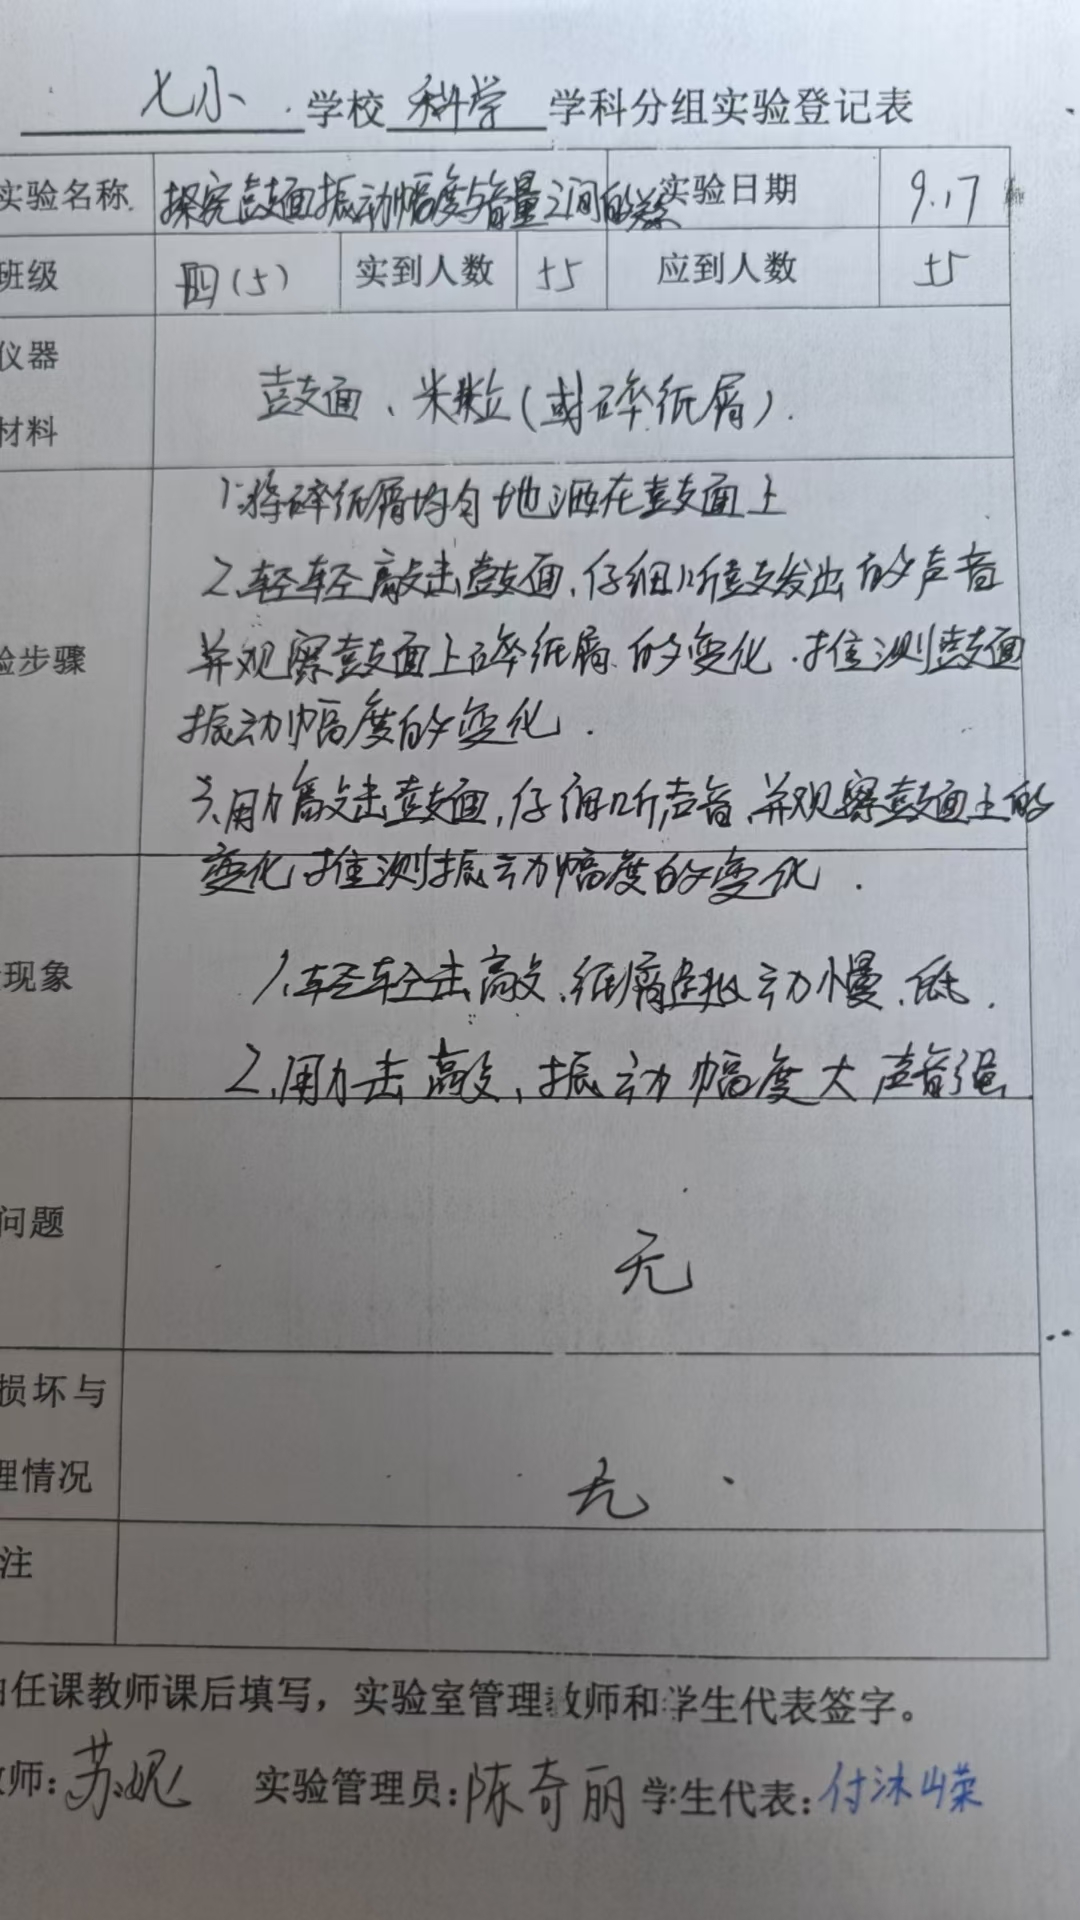 七小 学校 科学 学科分组实验登记表
实验名称 探究鼓面振动幅度与音量之间的关系 实验日期 9.17
班级 四(5) 实到人数 55 应到人数 55
仪器
材料
鼓面、米粒(或碎纸屑).
1.将碎纸屑均匀地洒在鼓面上
2.轻轻敲击鼓面,仔细听鼓发出的声音
并观察鼓面上碎纸屑的变化.推测鼓面
验步骤
振动幅度的变化.
3.用力敲击鼓面,仔细听声音,并观察鼓面上的
变化,推测振动幅度的变化.
现象
1.轻轻击敲,纸屑 动慢,低.
2.用力击敲,振动幅度大 声音强
问题
无
损坏与
理情况
无
注
由任课教师课后填写,实验室管理教师和学生代表签字。
教师:苏妮 实验管理员:陈奇丽 学生代表:付沐嵘